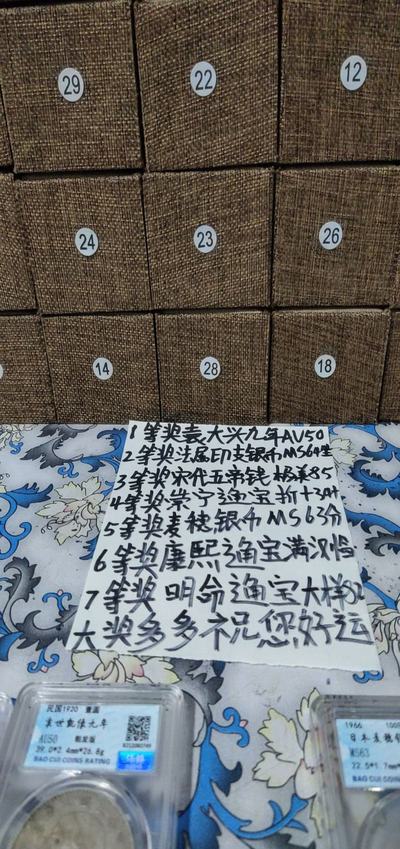 29
22
12
24
23
26
14
28
18
1等奖袁大兴九年AU50
2等奖法属印支银币MS64
3等奖宋代五帝钱 极美85
4等奖崇宁通宝折十
5等奖麦穗银币MS63分
6等奖康熙通宝满汉
7等奖 明命通宝大样82
大奖多多祝您好运
民国1920 壹圆
袁世凯像九年
AU50 精发版
39.0*2.4mm*26.8g
BAO CUI COINS RATING
1966 100
日本麦穗银
MS63
22.5*1.7mm
BAO CUI COIN